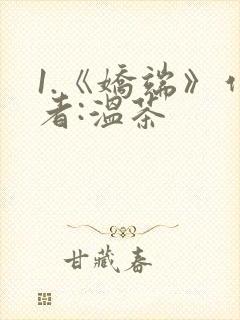 1.《嬌端》
者:溫茶
甘藏春